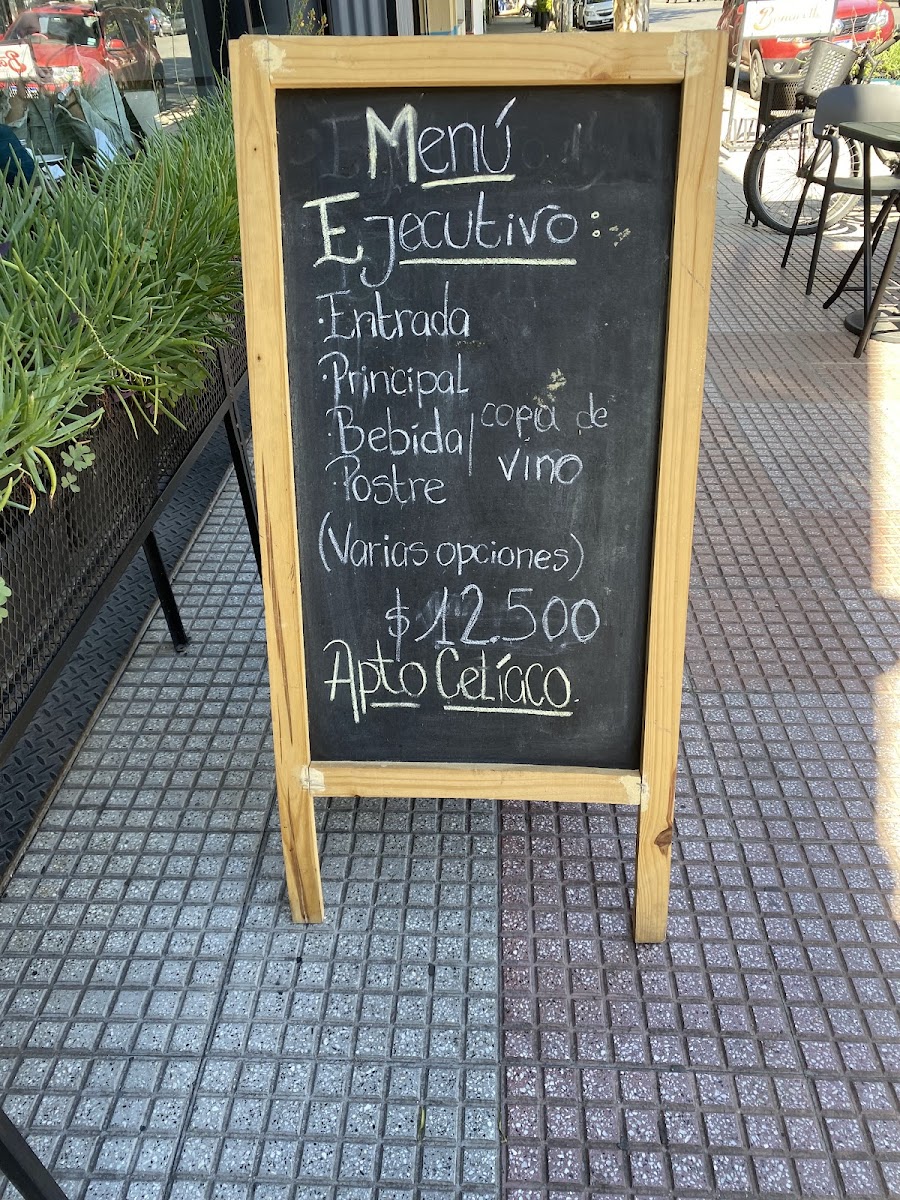 Menú
Ejecutivo:
·Entrada
·Principal
·Bebida/copa de
vino
·Postre
(Varias opciones)
$12.500
Apto Celíaco.